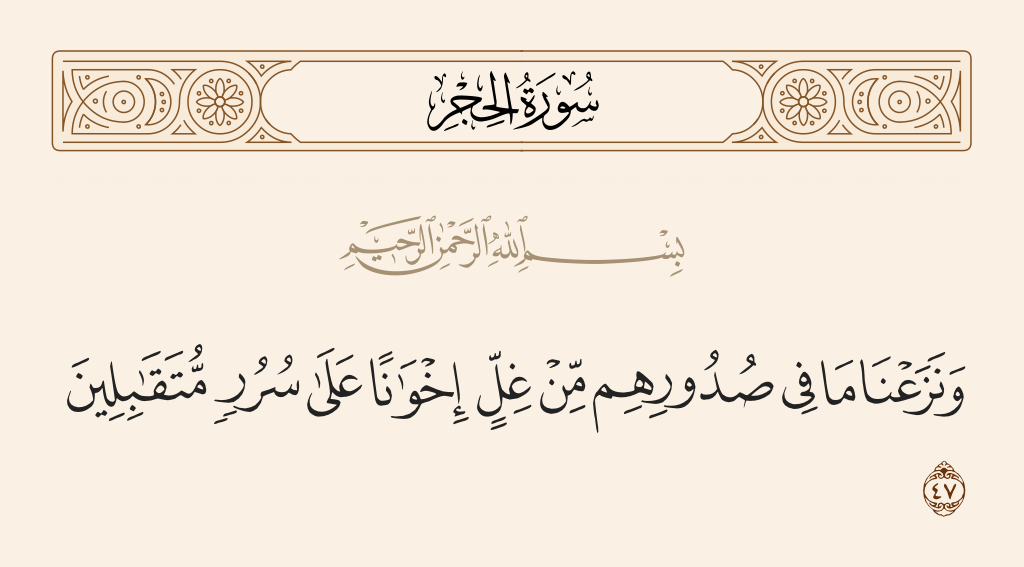 سُورَةُ الحِجْرِ
بِسْمِ ٱللَّهِ ٱلرَّحْمَٰنِ ٱلرَّحِيمِ
وَنَزَعْنَا مَا فِى صُدُورِهِم مِّنْ غِلٍّ إِخْوَٰنًا عَلَىٰ سُرُرٍ مُّتَقَٰبِلِينَ
٤٧